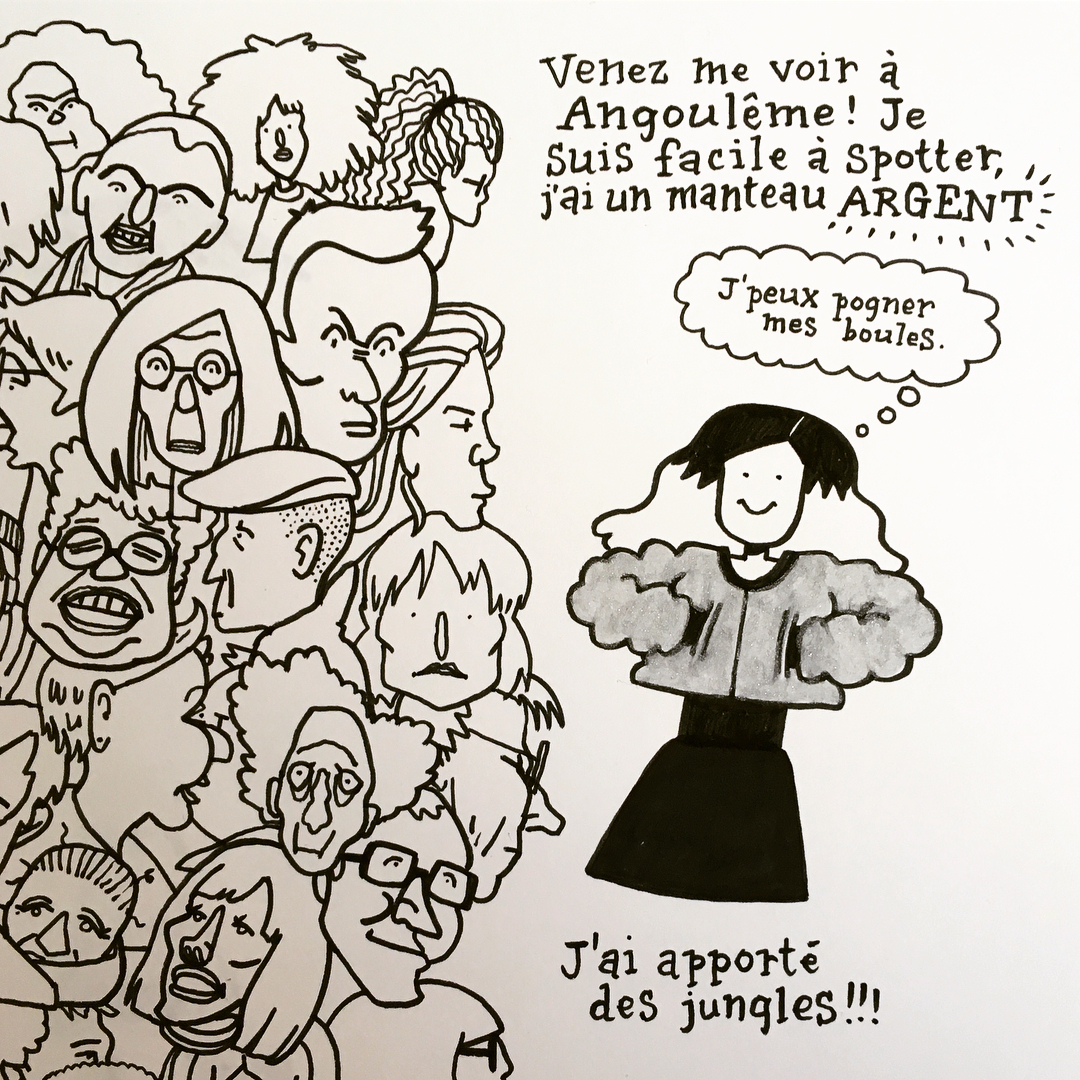 Venez me voir à
Angoulême! Je
suis facile à spotter,
j'ai un manteau ARGENT
J'peux pogner
mes boules.
J'ai apporté
des jungles!!!